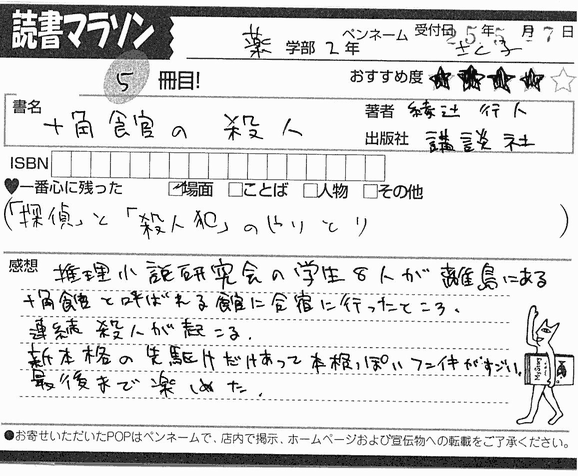 読書マラソン
薬 学部 2 年 ペンネーム 受付日 25年 月 7日
5 冊目! おすすめ度 ★★★★☆
書名 十角館の 殺人
著者 綾辻 行人
出版社 講談社
ISBN
♥一番心に残った 場面 ことば 人物 その他
(「探偵」と「殺人犯」のやりとり)
感想 推理小説研究会の学生8人が離島にある
十角館と呼ばれる館に合宿に行ったところ、
連続殺人が起こる。
新本格の先駆けだけあって本格っぽい事件がすごい。
最後まで楽しめた。
●お寄せいただいたPOPはペンネームで、店内で掲示、ホームページおよび宣伝物への転載をご了承ください。